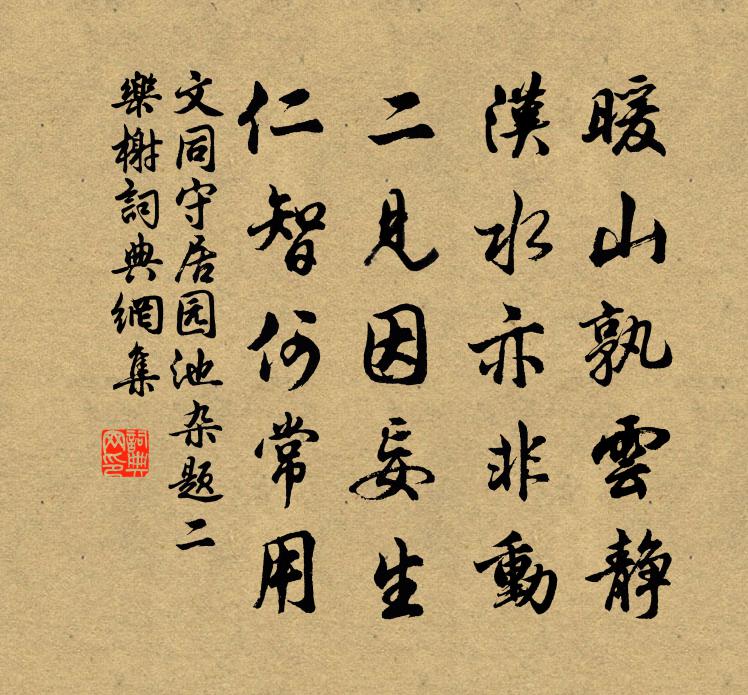 暖山孰雲靜
漢水亦非動
二見因妄生
仁智何常用
文同守居园池杂题二
樂榭詞典網集
詞典網印